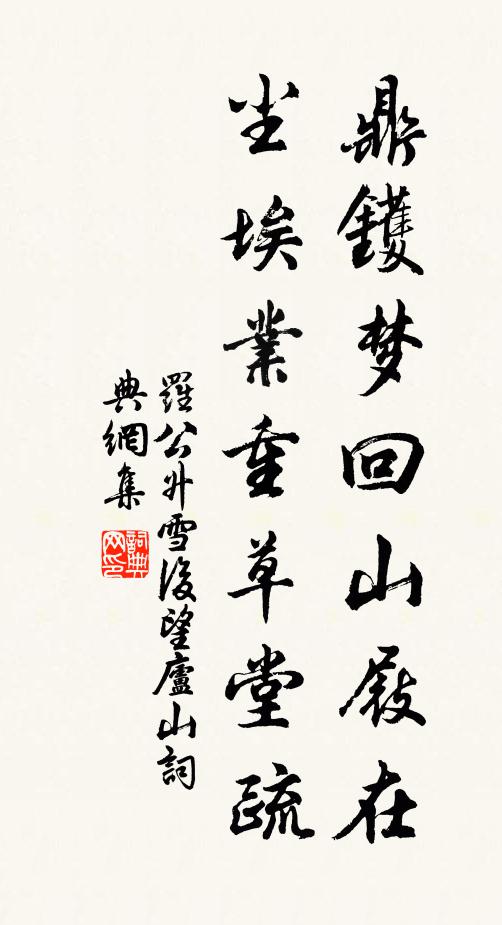 鼎鑊梦回山殿在
尘埃業重草堂疏
羅公升雪後望廬山詞
典網集
詞典
网印